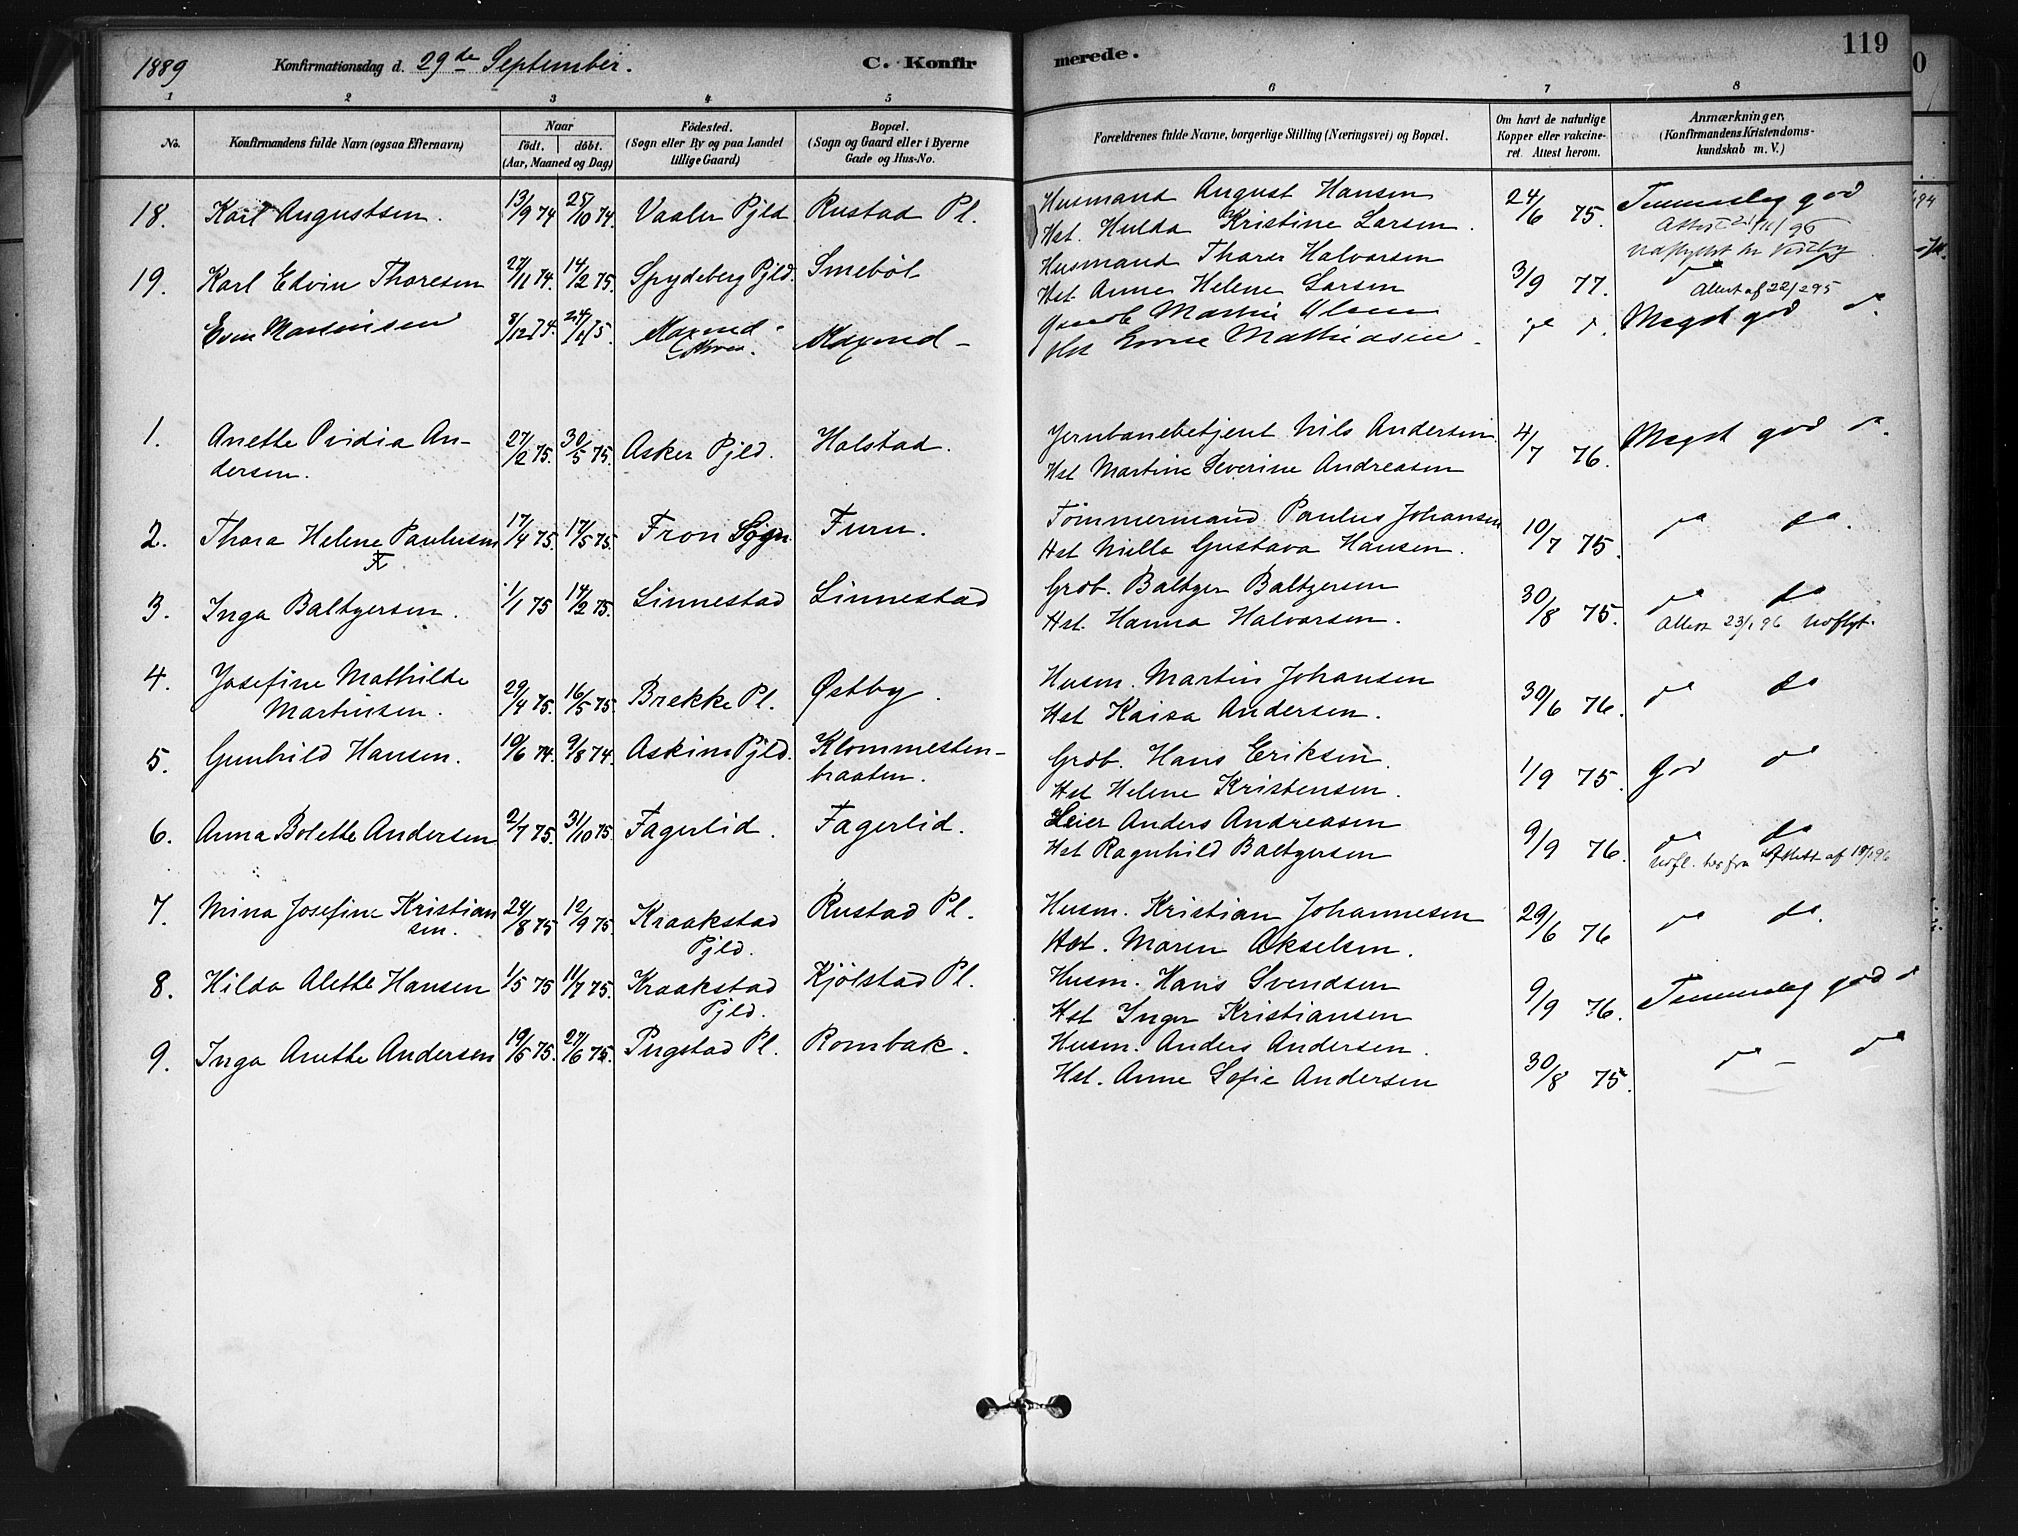 1889 Konfirmationsdag d. 29de September. C. Konfirmerede. 119
1 2 3 4 5 6 7 8
No. Konfirmandens fulde Navn (ogsaa Efternavn) Naar født. døbt. (Aar, Maaned og Dag) Fødested. (Sogn eller By og paa Landet tillige Gaard) Bopæl. (Sogn og Gaard eller i Byerne Gade og Hus-No. Forældrenes fulde Navne, borgerlige Stilling (Næringsvei) og Bopæl. Om havt de naturlige Kopper eller vakcineret. Attest herom. Anmærkninger, (Konfirmandens Kristendomskundskab m. V.)
18. Karl Augustsen. 13/9 74 25/10 74. Vaaler Pjld Rustad Pl. Husmand August Hansen 24/6 75. Temmelig god
Hst. Hulda Kristine Larsen.
19. Karl Edvin Thoresen 27/11 74. 14/2 75. Spydeberg Pjld. Smebøl Husmand Thorer Halvorsen 3/9 77. do
Hst. Anne Helene Larsen Attest af 22/2 95
Even Martinsen 8/12 74. Martin Olsen Meget god do
Hst Mathiasen
1. Anette Ovidia Andersen. 27/2 75. 30/5 75. Asker Pjld. Holstad. Jernbanebetjent Nils Andersen 4/7 76. Meget god do.
Hst Martine Severine Andreasen
2. Thora Helene Paulusen 17/4 75. 17/5 75. Fron Sogn Furu. Tømmermand Paulus Johansen 10/7 75. do do.
Hst Nilla Gustava Hansen.
3. Inga Baltzersen. 1/1 75 14/2 75. Linnestad Linnestad Grdb. Baltzer Baltzersen 30/8 75. do do
Hst. Hanna Halvorsen. Attest 23/1 96 Udflyt.
4. Josefine Mathilde Martinsen. 29/4 75. 16/5 75. Brekke Pl. Østby. Husm. Martin Johansen 30/6 76. do do
Hst Kaisa Andersen.
5. Gunhild Hansen. 10/6 74. 9/8 74. Askim Pjld. Klommestenbraaten. Grdb. Hans Eriksen. 1/9 75. God do
Hst Helene Kristensen.
6. Anna Bolette Andersen 2/7 75. 31/10 75. Fagerlid. Fagerlid. Leier Anders Andreasen 9/9 76. do do
Hst Ragnhild Baltzersen Udfl. herfra Attest af 18/1 96
7. Mina Josefine Kristiansen. 24/8 75 12/9 75. Kraakstad Pjld. Rustad Pl. Husm. Kristian Johannesen 29/6 76 do do.
Hst. Maren Akselsen.
8. Hilda Alette Hansen 1/5 75 11/7 75. Kraakstad Pjld. Kjølstad Pl. Husm. Hans Svendsen 9/9 76. Temmelig god do
Hst Inger Kristiansen
9. Inga Anette Andersen 19/5 75. 27/6 75. Pugstad Pl. Rombak. Husm. Anders Andersen. 30/8 75. do - do
Hst. Anne Sofie Andersen